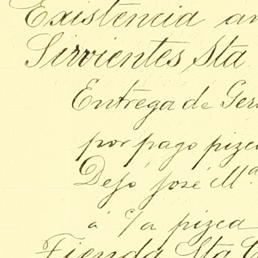 Existencia an
Sirvientes Sta
Entrega de Ger
por pago pizca
Dejó José Mª
á c/a pizca
Tienda Sta C